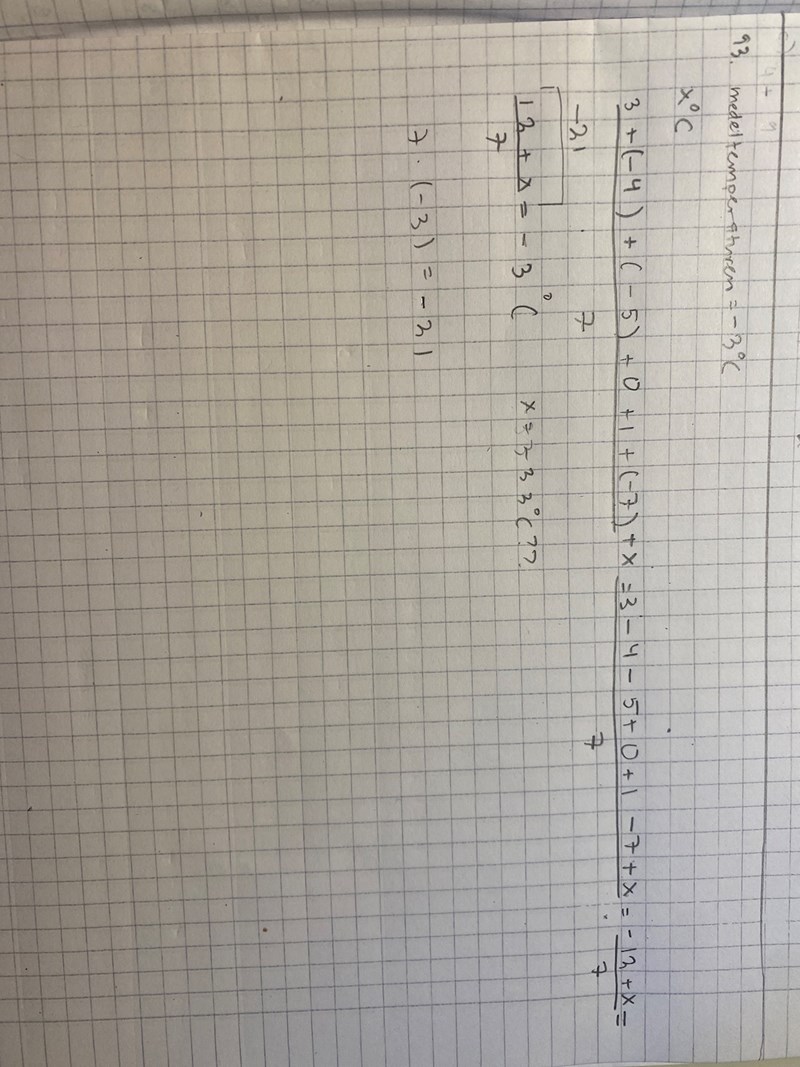 93. medeltemperaturen = -3°C
x°C
3 + (-4) + (-5) + 0 + 1 + (-7) + x = 3 - 4 - 5 + 0 + 1 - 7 + x = -12 + x =
7 7 7
-21
12 + x = -3°C x = 33°C??
7
7 · (-3) = -21